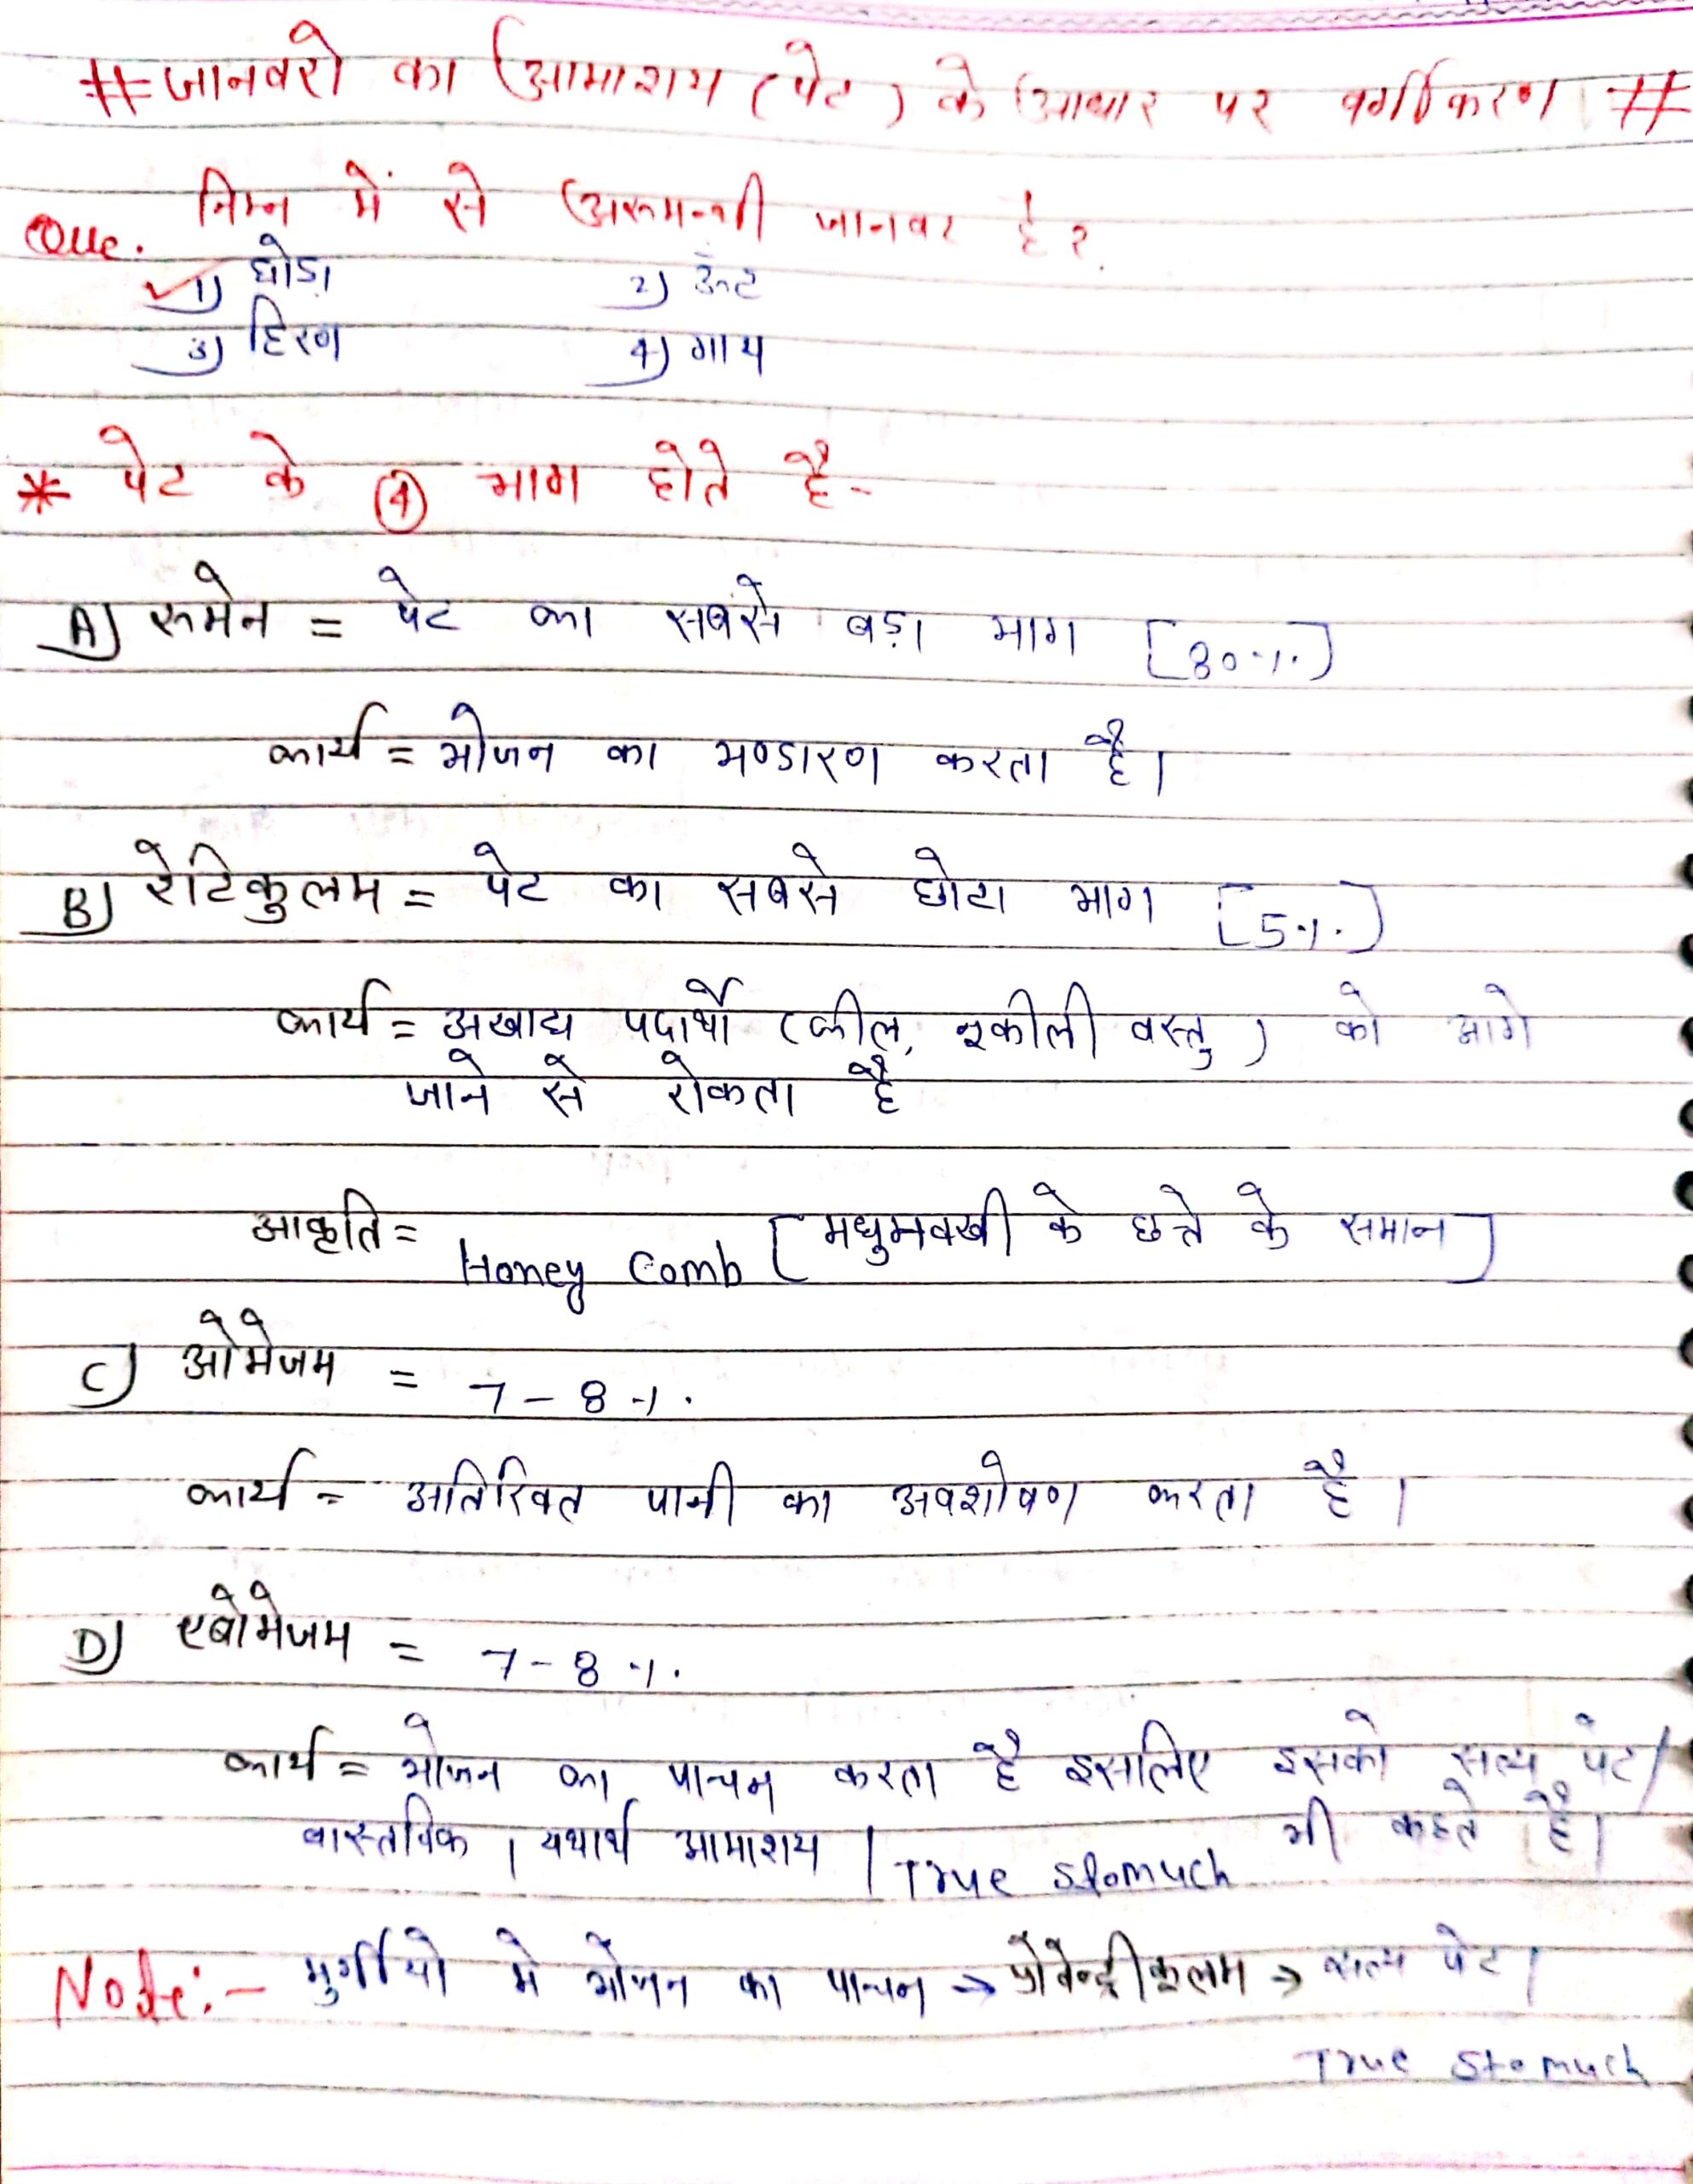 # जानवरो का आमाशय (पेट) के आधार पर वर्गीकरण #
Que. निम्न में से अरूमन्थी जानवर है?
1) घोड़ा 2) ऊँट
3) हिरण 4) गाय
* पेट के 4 भाग होते है-
A) रूमेन = पेट का सबसे बड़ा भाग [80%]
कार्य = भोजन का भण्डारण करता है।
B) रेटिकुलम = पेट का सबसे छोटा भाग [5%]
कार्य = अखाद्य पदार्थो (कील, नुकीली वस्तु) को आगे
जाने से रोकता है
आकृति = Honey Comb [मधुमक्खी के छत्ते के समान]
C) ओमेजम = 7-8%
कार्य = अतिरिक्त पानी का अवशोषण करता है।
D) एबोमेजम = 7-8%
कार्य = भोजन का पाचन करता है इसलिए इसको सत्य पेट/
वास्तविक / यथार्थ आमाशय / True Stomuch भी कहते है।
Note:- मुर्गीयो मे भोजन का पाचन → प्रोवेन्ट्रीकूलम → सत्य पेट /
True Stomuch